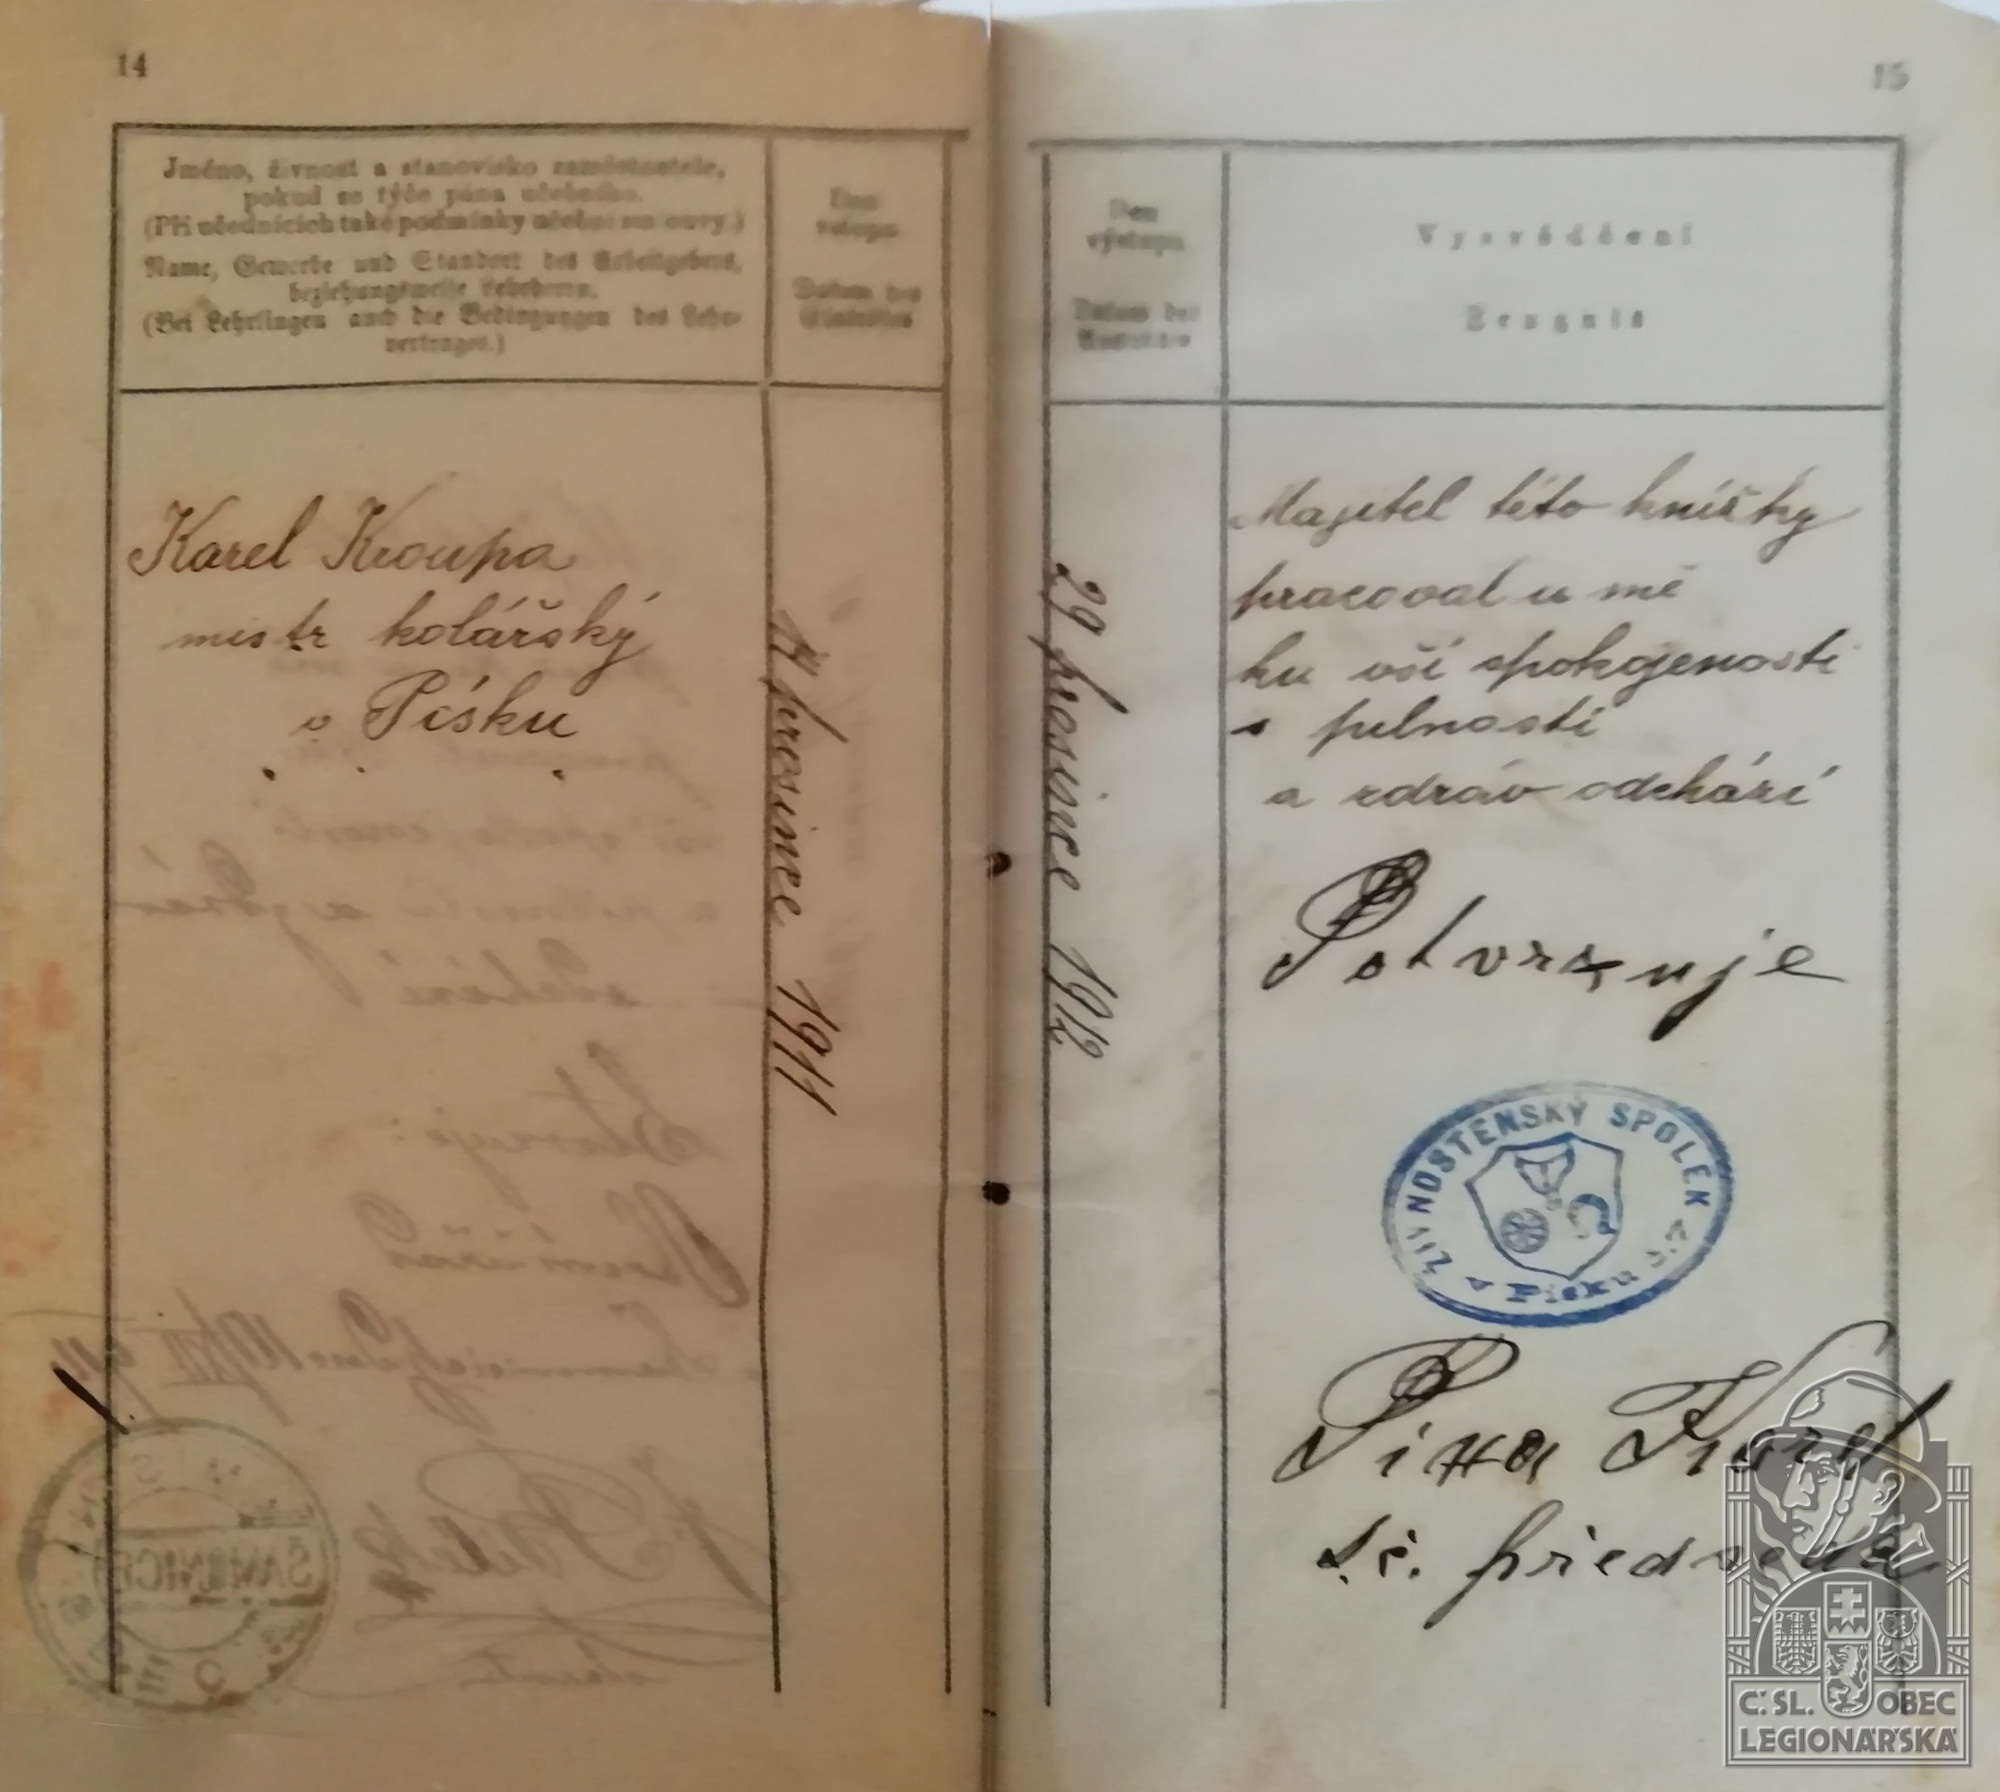 14
Jméno, živnost a stanovisko zaměstnatele,
pokud se týče pána učebního.
(Při učednících také podmínky učební smlouvy.)
Name, Gewerbe und Standort des Arbeitgebers,
beziehungsweise Lehrherrn.
(Bei Lehrlingen auch die Bedingungen des Lehr-
vertrages.)
Den
vstupu
Datum des
Eintrittes
Karel Kroupa
mistr kolářský
v Písku
14 prosince 1911
15
Den
výstupu
Datum des
Austritts
Vysvědčení
Zeugnis
29 prosince 1912
Majitel této knížky
pracoval u mě
ku vší spokojenosti
s pilností
a zdráv odchází
Potvrzuje
ŽIVNOSTENSKÝ SPOLEK
v Písku
Karel
t.č. předseda
Č.SL. OBEC
LEGIONÁŘSKÁ